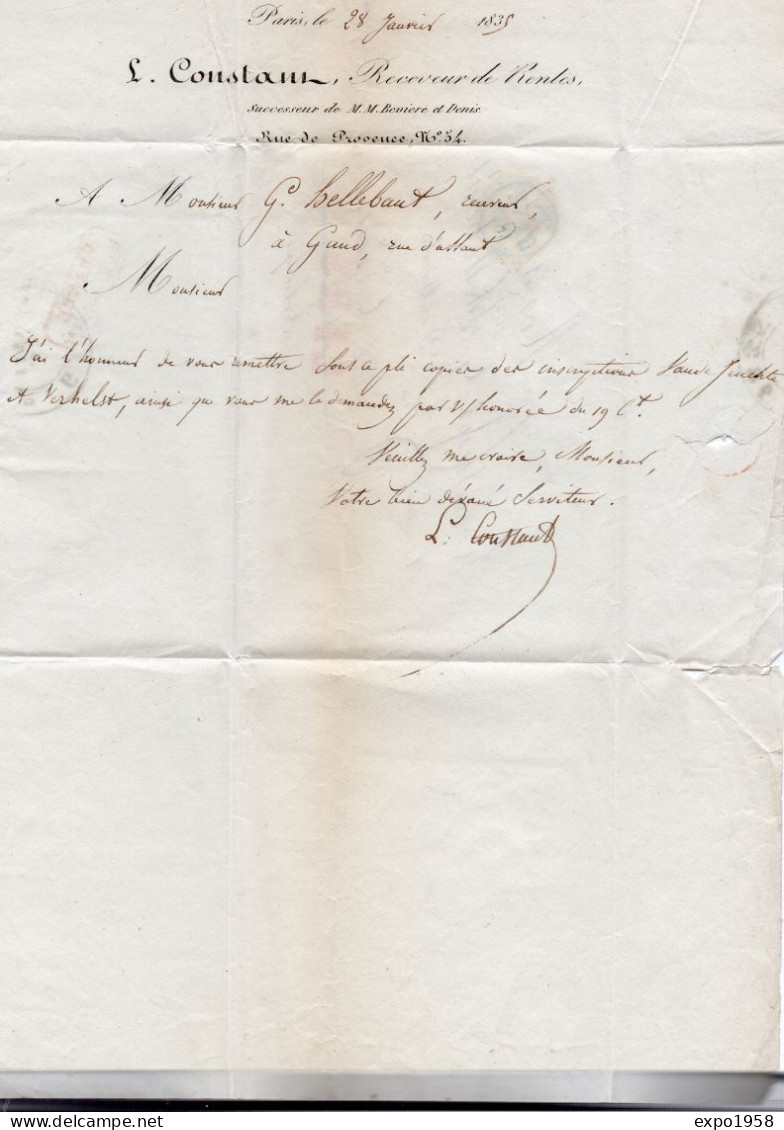 Paris, le 28 Janvier 1835
L. Constant, Receveur de Rentes,
Successeur de M.M. Boviere et Denis
Rue de Provence, N° 54.
A Monsieur G. hellebaut, receveur,
à Gand, rue d'assaut
Monsieur
J'ai l'honneur de vous remettre sous ce pli copies des inscriptions
& Verhelst, ainsi que vous me le demandez par v/honorée du 19 Ct.
Veuillez me croire, Monsieur,
Votre bien dévoué Serviteur.
L. Constant
expo1958